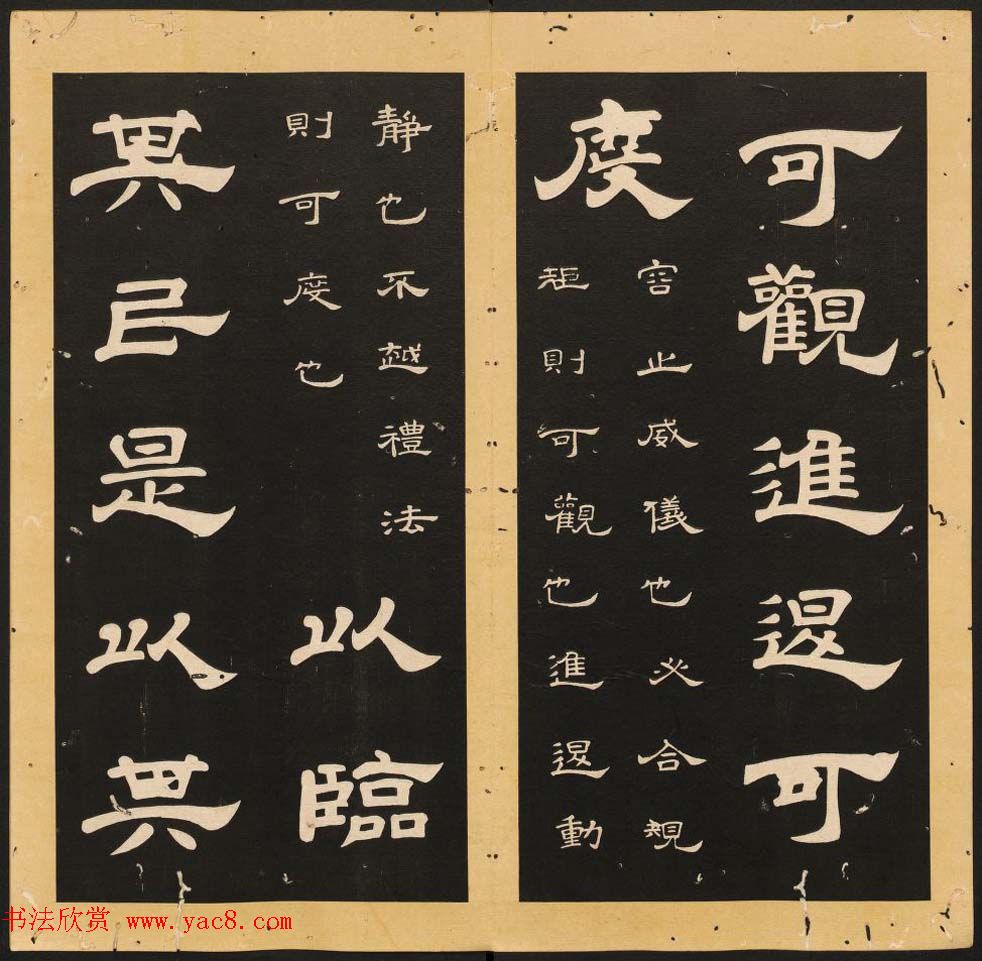 可觀進退可
度
容止威儀也必合規
矩則可觀也進退動
靜也不越禮法
則可度也
以臨
其民是以其
书法欣赏 www.yac8.com